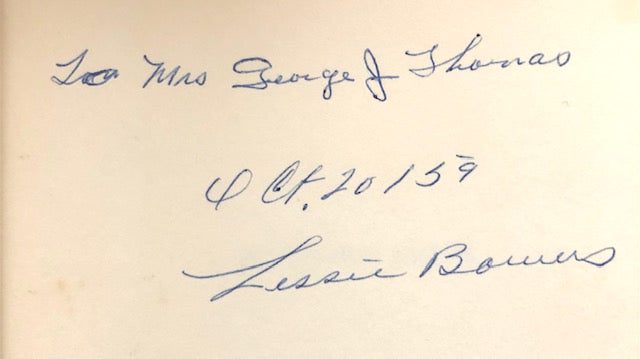 To Mrs George J Thomas
Oct. 20 / 59
Lessie Bowers